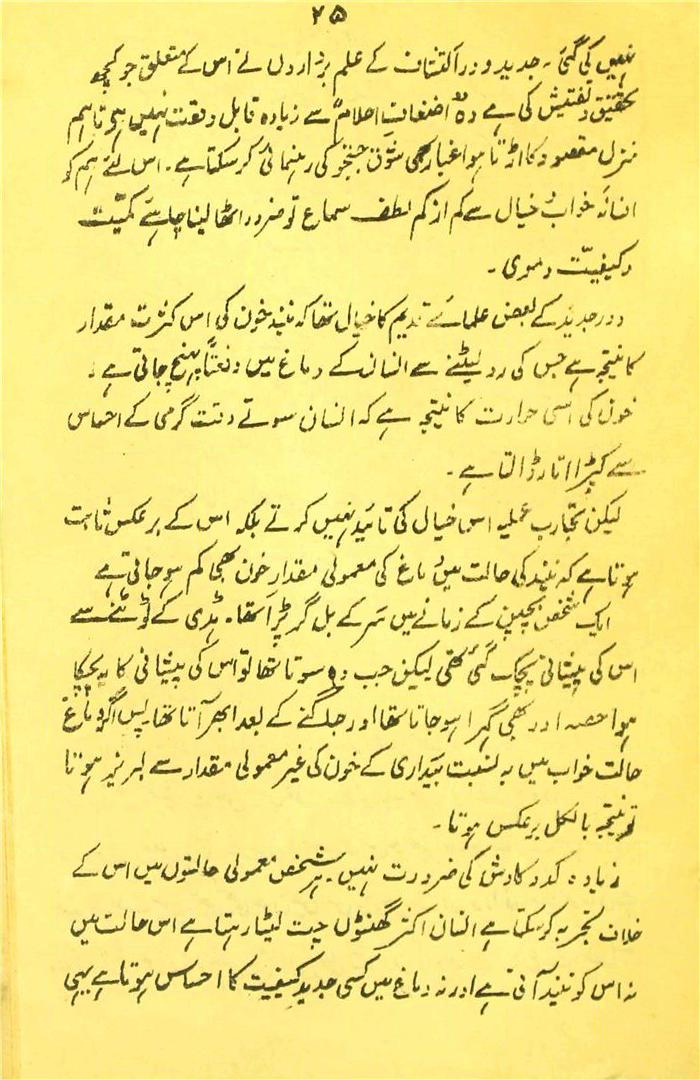 ۲۵
نہیں کی گئی ۔ جدید دور اکتشاف کے علم برداروں نے اس کے متعلق جو کچھ
تحقیق و تفتیش کی ہے وہ اضغاث احلام سے زیادہ قابل وقعت نہیں ہو تاہم
منزل مقصود کا اڑتا ہوا غبار بھی شوق جستجو کی رہنمائی کر سکتا ہے ۔ اس لئے ہم کو
افسانۂ خواب و خیال سے کم از کم لطف سماع تو ضرور اٹھا لینا چاہئے کمیّت
و کیفیّت دموی ۔
دور جدید کے بعض علمائے قدیم کا خیال تھا کہ نیند خون کی اس کثرت مقدار
کا نتیجہ ہے جس کی رو لیٹنے سے انسان کے دماغ میں دفعتاً پہنچ جاتی ہے ۔
خون کی اسی حرارت کا نتیجہ ہے کہ انسان سوتے وقت گرمی کے احساس
سے کپڑا اتار ڈالتا ہے ۔
لیکن تجارب عملیہ اس خیال کی تائید نہیں کرتے بلکہ اس کے برعکس ثابت
ہوتا ہے کہ نیند کی حالت میں دماغ کی معمولی مقدار خون بھی کم ہو جاتی ہے
ایک شخص بچپن کے زمانے میں سر کے بل گر پڑا تھا ۔ ہڈی کے ٹوٹنے سے
اس کی پیشانی پچک گئی تھی لیکن جب وہ سوتا تھا تو اس کی پیشانی کا پچکا
ہوا حصہ اور بھی گہرا ہو جاتا تھا اور جگنے کے بعد ابھر آتا تھا پس اگر دماغ
حالت خواب میں بہ نسبت بیداری کے خون کی غیر معمولی مقدار سے لبریز ہوتا
تو نتیجہ بالکل برعکس ہوتا ۔
زیادہ کدو کاوش کی ضرورت نہیں ہر شخص معمولی حالتوں میں اس کے
خلاف تجربہ کر سکتا ہے انسان اکثر گھنٹوں چت لیٹا رہتا ہے اس حالت میں
نہ اس کو نیند آتی ہے اور نہ دماغ میں کسی جدید کیفیت کا احساس ہوتا ہے یہی